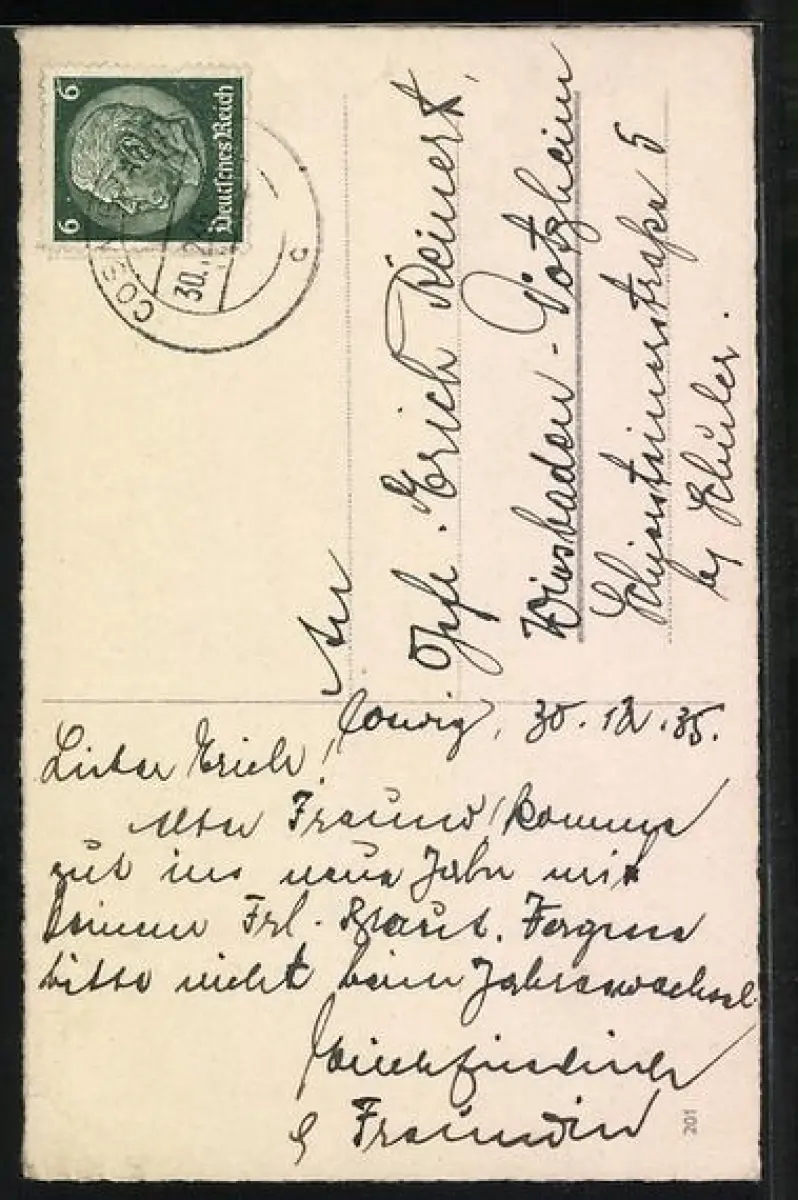 6 Deutsches Reich 6
COS
30.
c
An
Opfr. Erich Reinert,
Wiesbaden-Dotzheim
Schiersteinerstraße 5
bei Schuler.
Coswig, 30.12.35.
Lieber Erich!
Alter Freund! komme
gut ins neue Jahr mit
Deiner Frl. Braut. Vergesse
bitte nicht beim Jahreswechsel
Freundin
201